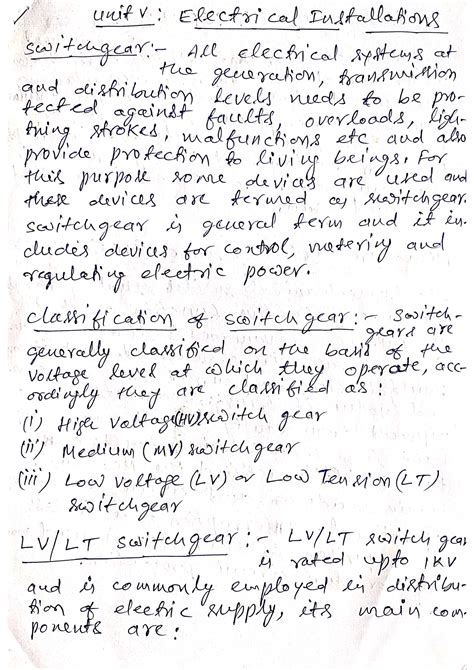 Unit V : Electrical Installations
Switchgear:- All electrical systems at
the generation, transmission
and distribution levels needs to be pro-
tected against faults, overloads, ligh-
tning strokes, malfunctions etc and also
provide protection to living beings. For
this purpose some devices are used and
these devices are termed as switchgear.
Switchgear is general term and it in-
cludes devices for control, metering and
regulating electric power.
Classification of switch gear:- Switch-
gears are
generally classified on the basis of the
voltage level at which they operate, acc-
ordingly they are classified as :
(i) High Voltage(HV) switch gear
(ii) Medium (MV) switchgear
(iii) Low Voltage (LV) or Low Tension (LT)
switchgear
LV/LT switchgear:- LV/LT switch gear
is rated upto 1KV
and is commonly employed in distribu-
tion of electric supply, its main com-
ponents are :